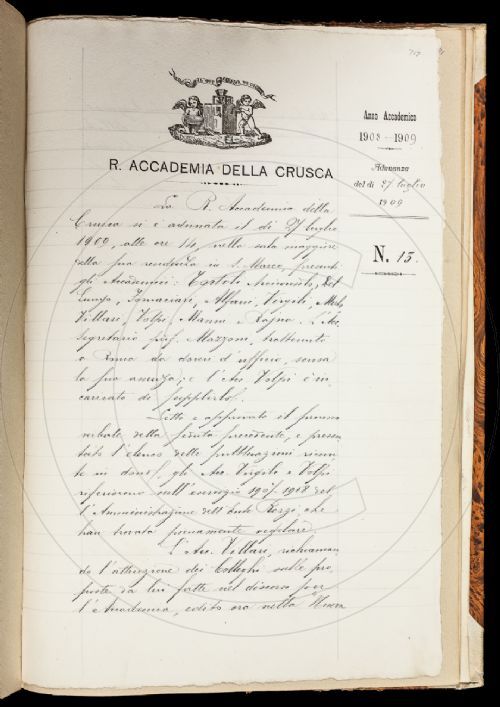 Anno Accademico
1908-1909
Adunanza
del dì 27 luglio
1909
N. 15.
R. ACCADEMIA DELLA CRUSCA
La R. Accademia della
Crusca si è adunata il dì 27 luglio
1909, alle ore 14, nella sala maggiore
della sua residenza in S. Marco, presenti
gli Accademici: Tortoli Arciconsolo, Del
Lungo, Tommasini, Alfani, Vergili,
Villari, Volpi, Manni e Rajna. L'Acc.
Segretario prof. Mazzoni, trattenuto
a Roma da doveri d'ufficio, scusa
la sua assenza; e l'Acc. Volpi è in
caricato di supplirlo.
Letto e approvato il processo
verbale della seduta precedente, e presen
tato l'elenco delle pubblicazioni venu
te in dono, gli Acc. Vergili e Volpi
riferiscono sull'esercizio 1907-1908 del
l'Amministrazione dell'Ente Rezzi, che
han trovato pienamente regolare.
L'Acc. Villari, richiaman
do l'attenzione dei Colleghi sulle pro
poste da lui fatte nel discorso per
l'Accademia, edito ora nella Nuova